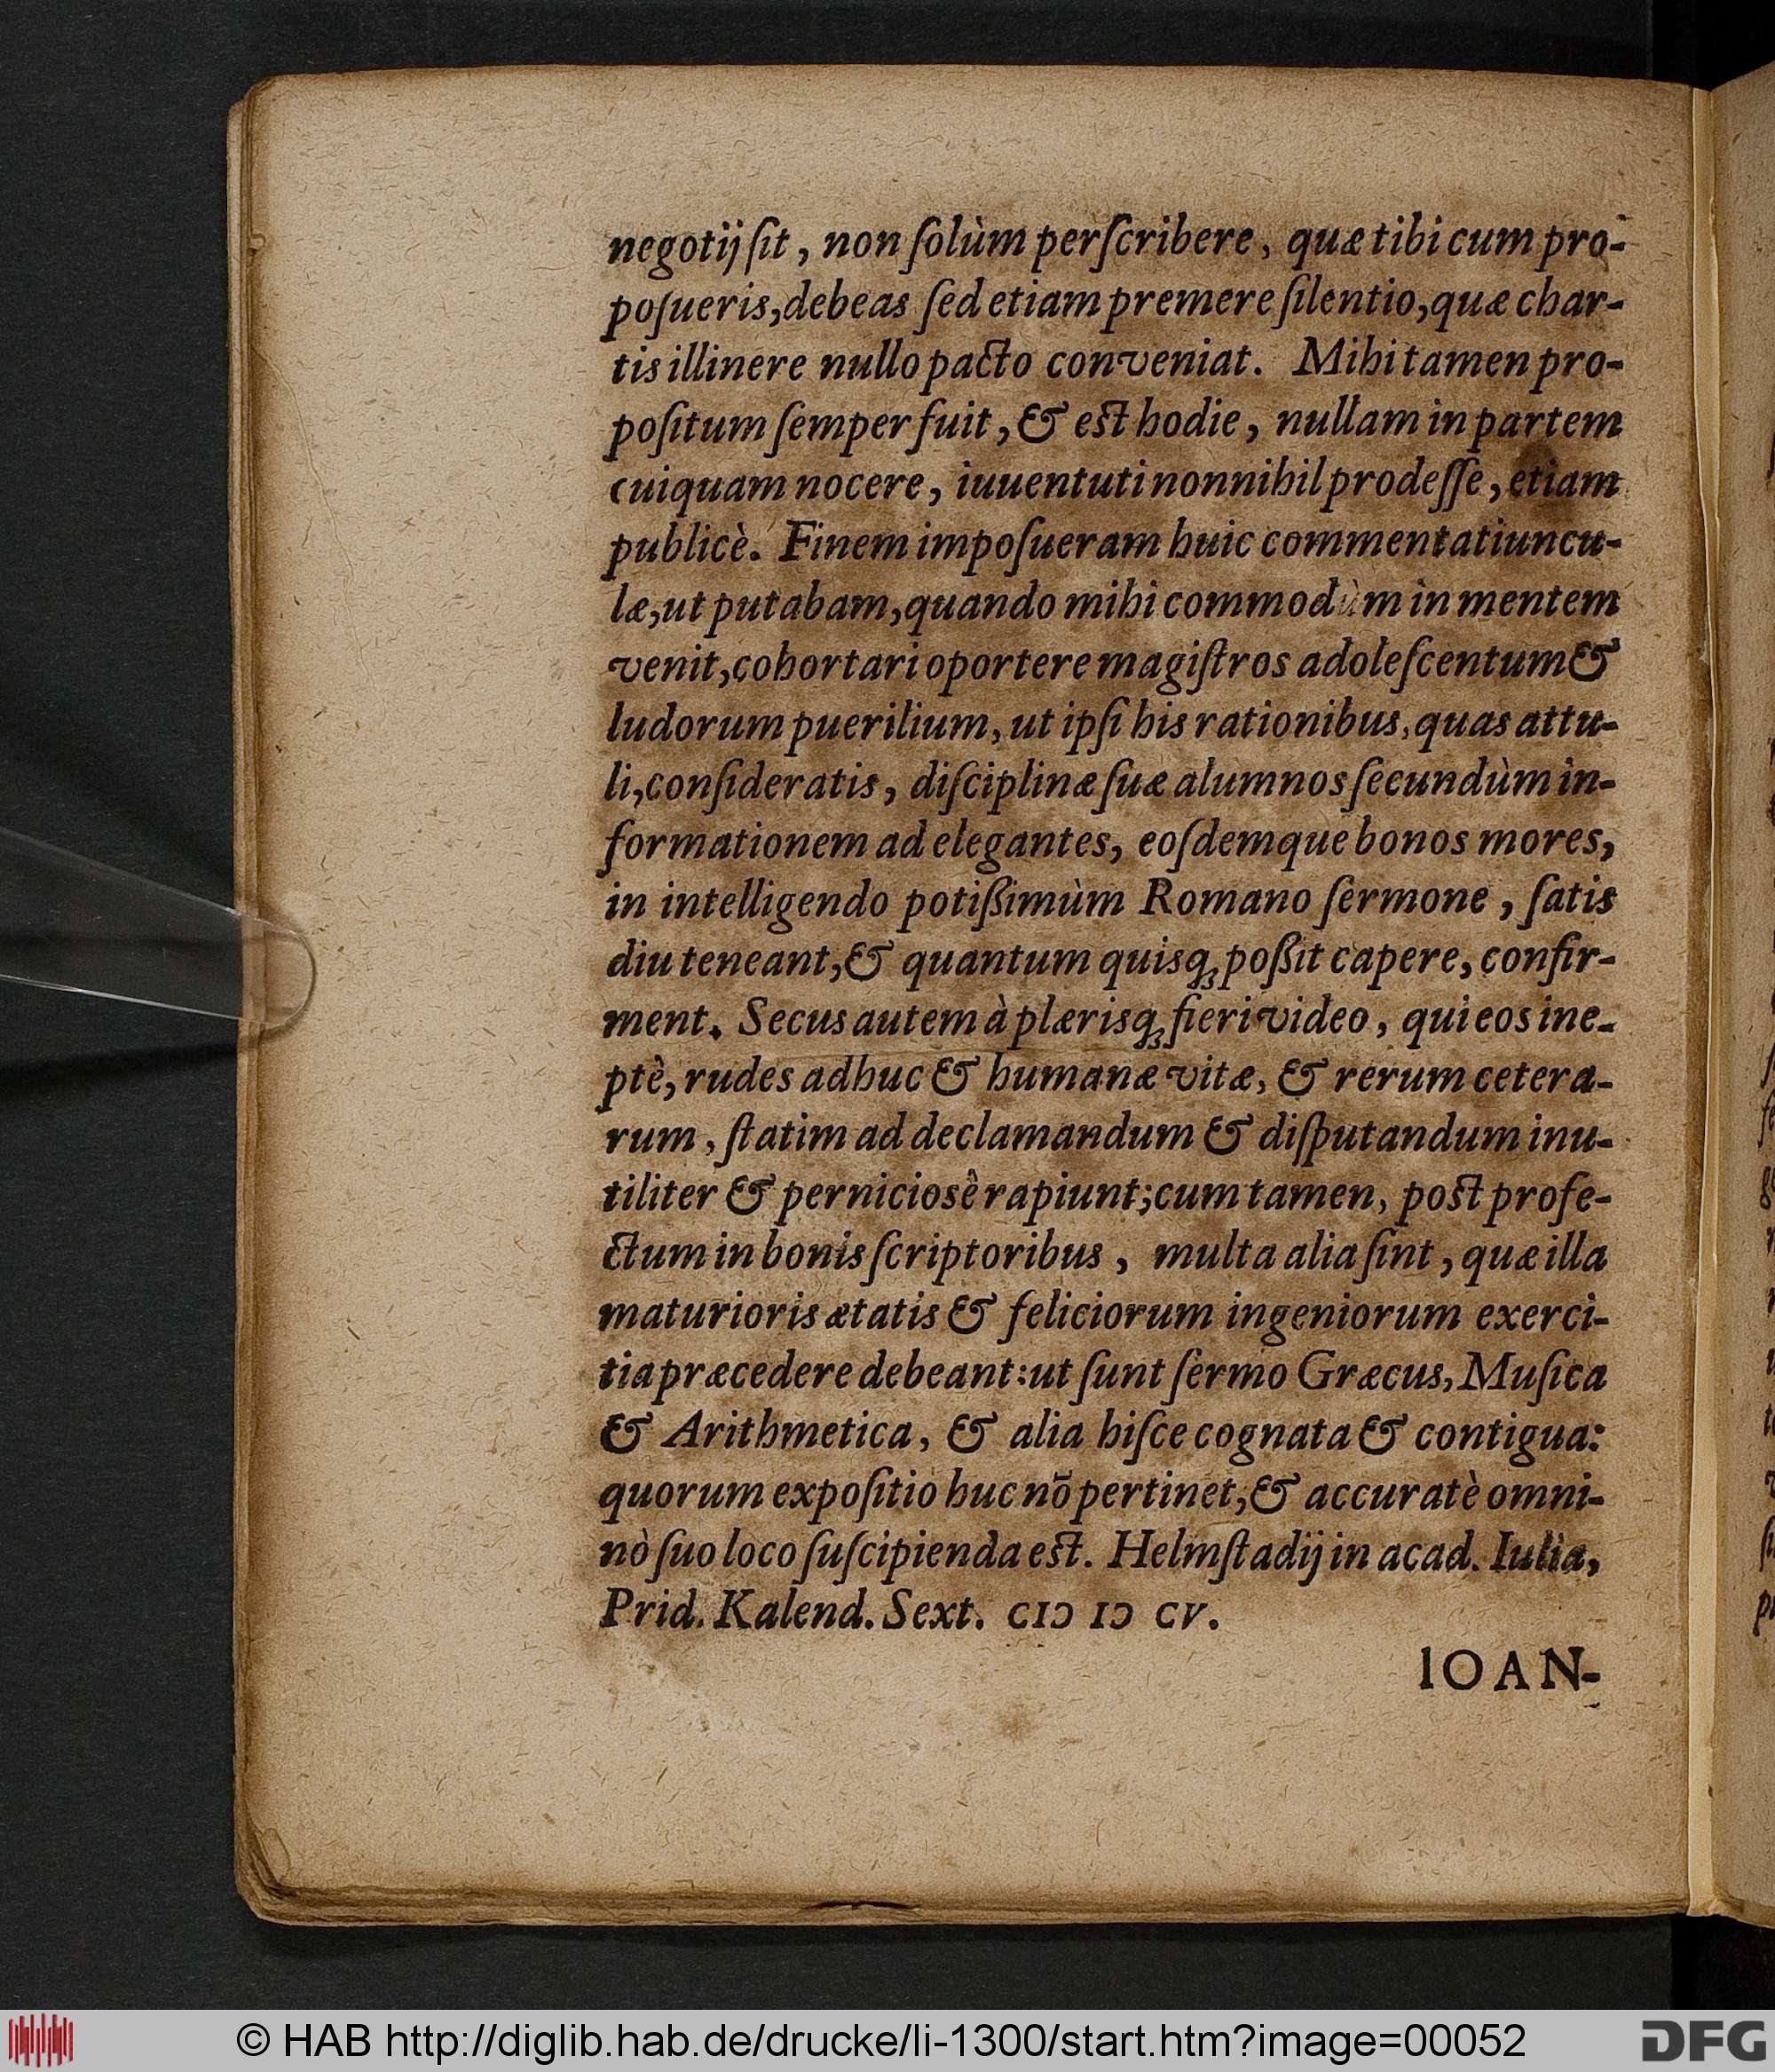 negotij ſit, non ſolùm perſcribere, quæ tibi cum pro-
poſueris, debeas ſed etiam premere ſilentio, quæ char-
tis illinere nullo pacto conveniat. Mihi tamen pro-
poſitum ſemper fuit, & est hodie, nullam in partem
cuiquam nocere, iuuentuti nonnihil prodeſſe, etiam
publicè. Finem impoſueram huic commentatiuncu-
læ, ut putabam, quando mihi commodùm in mentem
venit, cohortari oportere magiſtros adoleſcentum &
ludorum puerilium, ut ipſi his rationibus, quas attu-
li, conſideratis, diſciplinæ ſuæ alumnos ſecundùm in-
formationem ad elegantes, eoſdemque bonos mores,
in intelligendo potißimùm Romano ſermone, ſatis
diu teneant, & quantum quisqꝫ poßit capere, confir-
ment. Secus autem à plærisqꝫ fieri video, qui eos ine-
ptê, rudes adhuc & humanæ vitæ, & rerum cetera-
rum, ſtatim ad declamandum & diſputandum inu-
tiliter & perniciosê rapiunt; cum tamen, post profe-
ctum in bonis ſcriptoribus, multa alia ſint, quæ illa
maturioris ætatis & feliciorum ingeniorum exerci-
tia præcedere debeant: ut ſunt ſermo Græcus, Muſica
& Arithmetica, & alia hiſce cognata & contigua:
quorum expoſitio huc nō pertinet, & accuratè omni-
nò ſuo loco ſuſcipienda est. Helmſtadij in acad. Iulia,
Prid. Kalend. Sext. CIↃ IↃ CV.
IOAN-
© HAB http://diglib.hab.de/drucke/li-1300/start.htm?image=00052
DFG